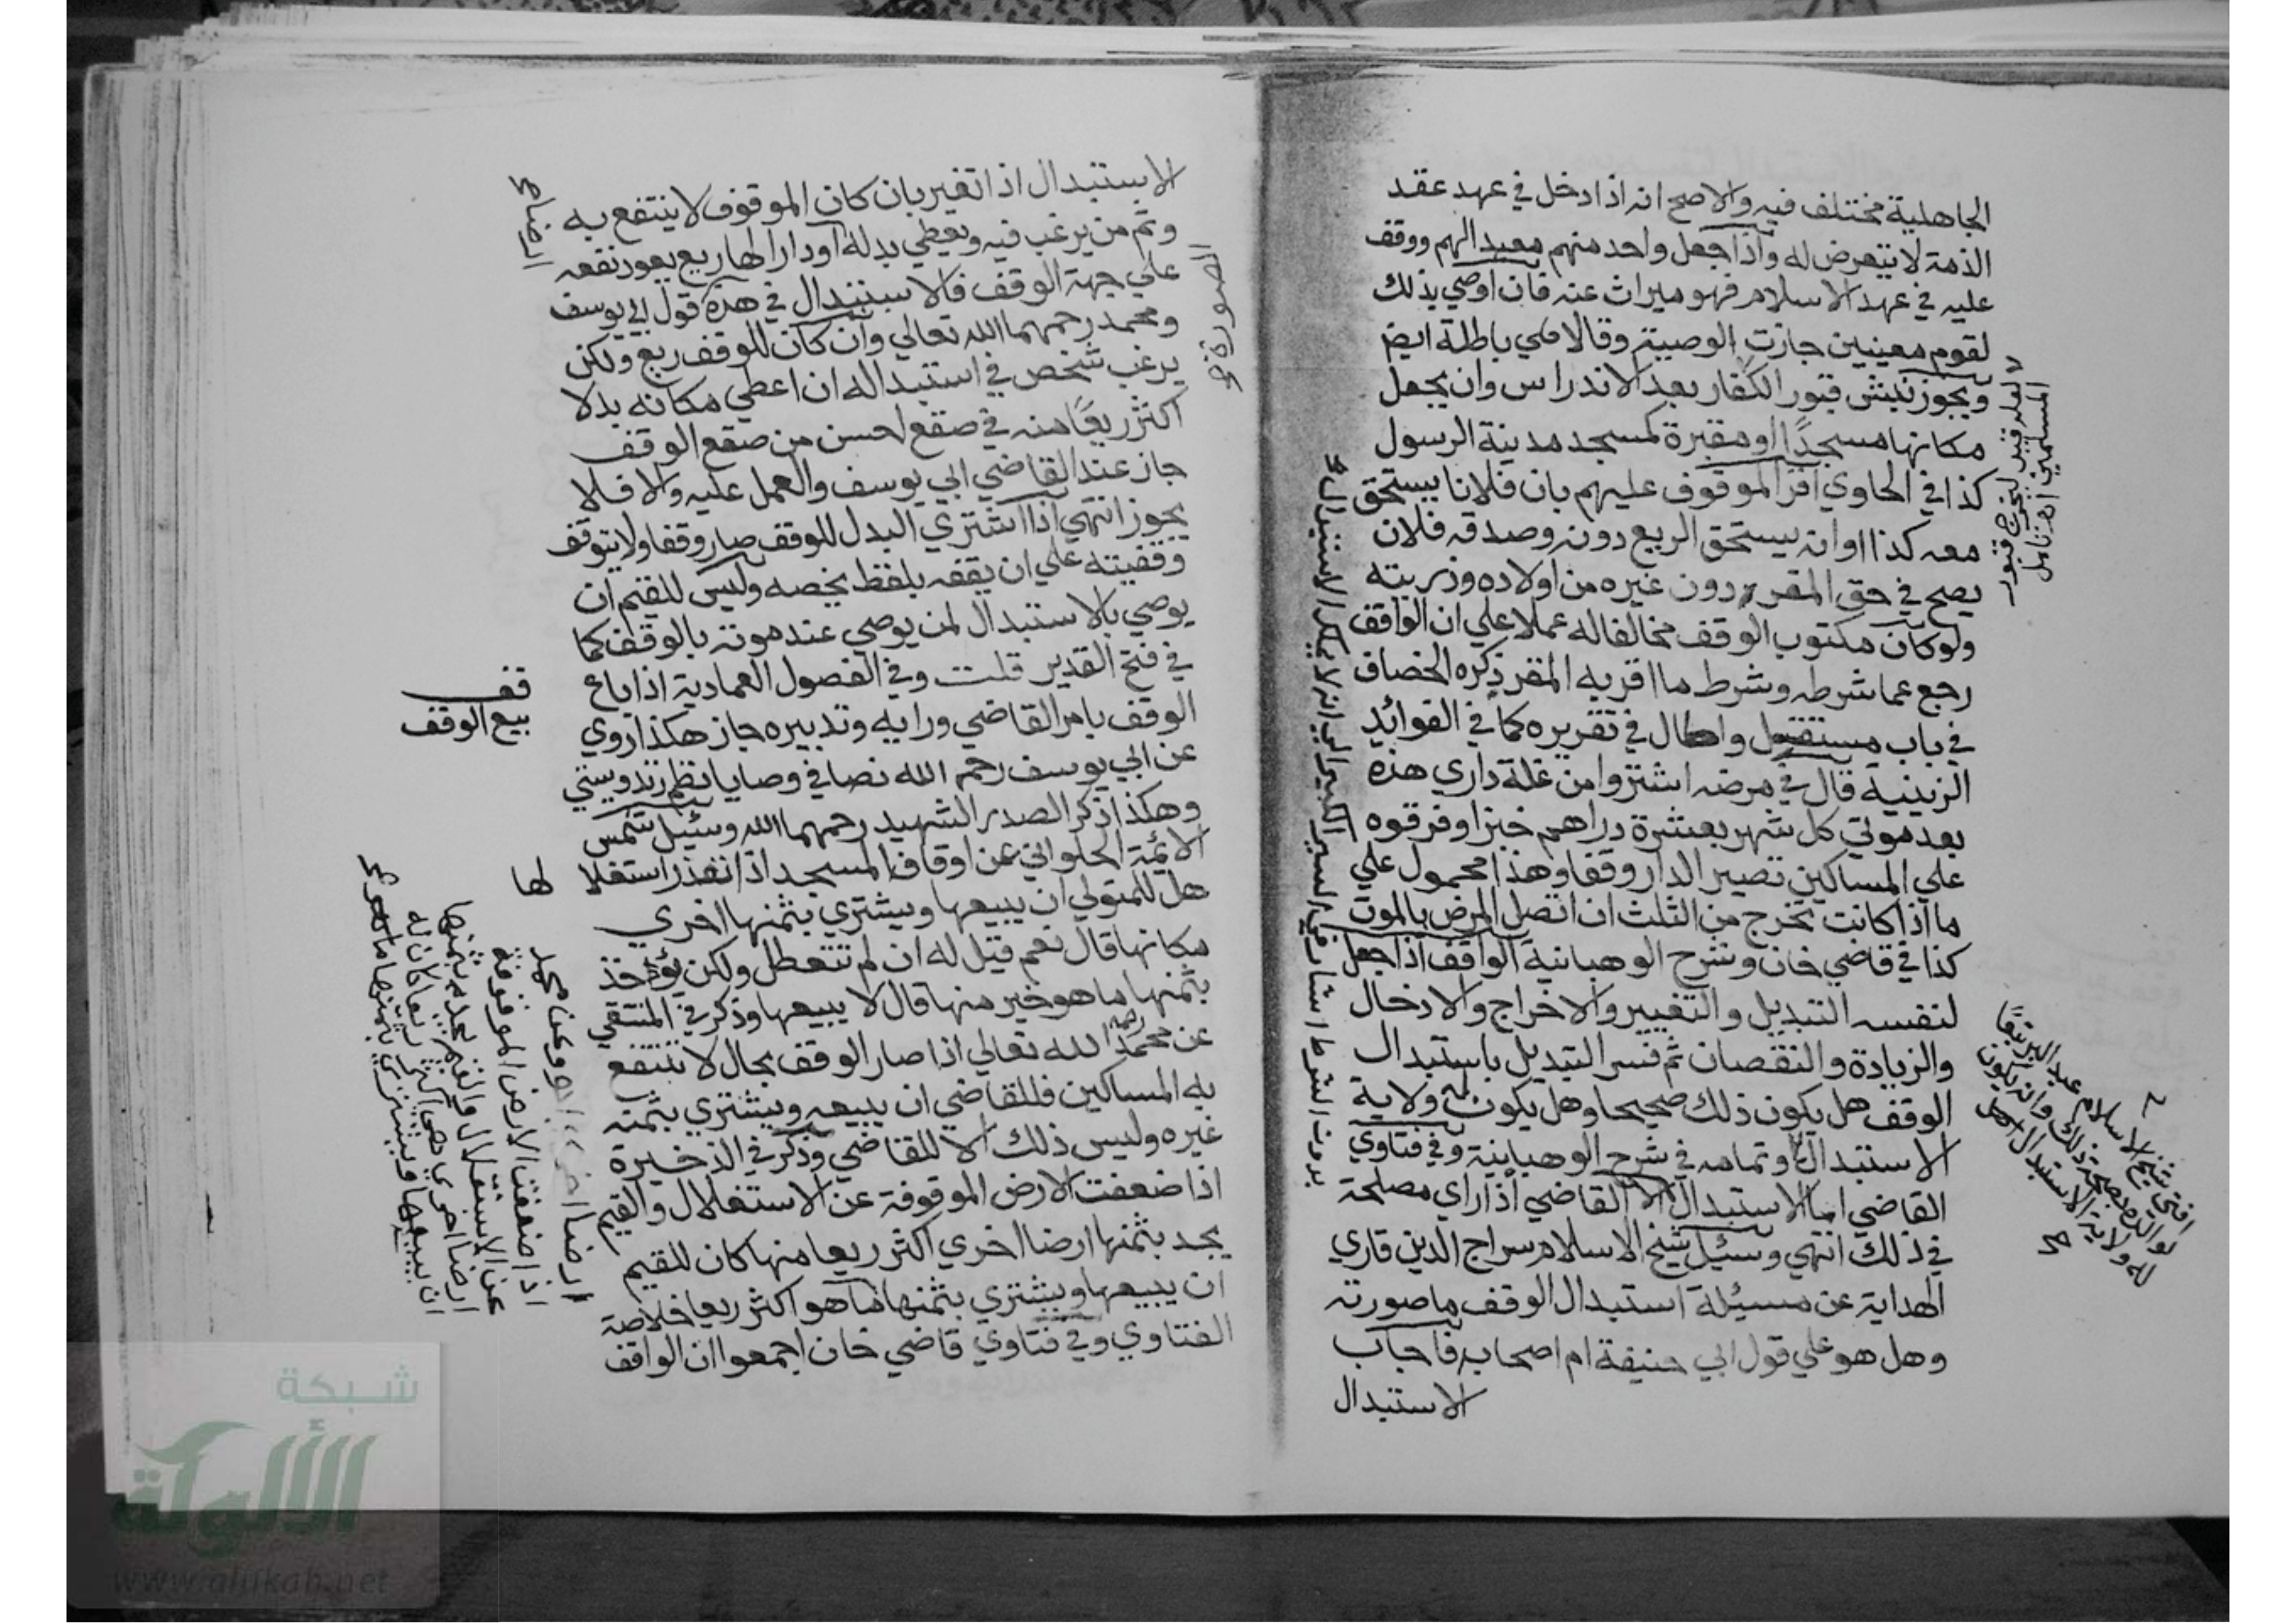 الجاهلية مختلف فيه والاصح انه اذا دخل في عهد عقد
الذمة لا يتعرض له واذا جعل واحد منهم معبد الهم ووقف
عليه في عهد الاسلام فهو ميراث عنه فان اوصي بذلك
لقوم معينين جازت الوصية وقالا هي باطلة ايض
ويجوز نبش قبور الكفار بعد الاندراس وان يجعل
مكانها مسجدًا او مقبرة كمسجد مدينة الرسول
كذا في الحاوي اقر الموقوف عليهم بان فلانا يستحق
معه كذا او انه يستحق الريع دونه وصدقه فلان
يصح في حق المقر دون غيره من اولاده وذريته
ولو كان مكتوب الوقف مخالفا له عملا علي ان الواقف
رجع عما شرطه وشرط ما اقر به المقر ذكره الخصاف
في باب مستقل واطال في تقريره كما في الفوائد
الزينية قال في مرضه اشتروا من غلة داري هذه
بعد موتي كل شهر بعشرة دراهم خبزا وفرقوه
علي المساكين تصير الدار وقفا وهذا محمول علي
ما اذا كانت تخرج من الثلث ان اتصل المرض بالموت
كذا في قاضي خان وشرح الوهبانية الواقف اذا جعل
لنفسه التبديل والتغيير والاخراج والادخال
والزيادة والنقصان ثم فسر التبديل باستبدال
الوقف هل يكون ذلك صحيحا وهل يكون له ولاية
الاستبدال وتمامه في شرح الوهبانية وفي فتاوي
القاضي اما الاستبدال الا القاضي اذا راي مصلحة
في ذلك انتهي وسئل شيخ الاسلام سراج الدين قاري
الهداية عن مسئلة استبدال الوقف ما صورته
وهل هو علي قول ابي حنيفة ام اصحابه فاجاب
الاستبدال
لعله قيد ليخرج قبور
المسلمين
افتي شيخ الاسلام عبد البر تبعًا
لوالده بصحة ذلك وان يكون
له ولاية الاستبدال
الاستبدال اذا تغير بان كان الموقوف لا ينتفع به
وثم من يرغب فيه ويعطي بدله او دارا لها ريع يعود نفعه
علي جهة الوقف فالاستبدال في هذه قول ابي يوسف
ومحمد رحمهما الله تعالي وان كان للوقف ريع ولكن
يرغب شخص في استبداله ان اعطي مكانه بدلا
اكثر ريعًا منه في صقع احسن من صقع الوقف
جاز عند القاضي ابي يوسف والعمل عليه والا فلا
يجوز انتهي اذا اشتري البدل للوقف صار وقفا ولا يتوقف
وقفيته علي ان يقفه بلفظ يخصه وليس للقيم ان
يوصي بالاستبدال لمن يوصي عند موته بالوقف كما
في فتح القدير قلت وفي الفصول العمادية اذا باع
الوقف بامر القاضي ورايه وتدبيره جاز هكذا روي
عن ابي يوسف رحمه الله نصا في وصايا نظم زندويستي
وهكذا ذكر الصدر الشهيد رحمهما الله وسئل شمس
الائمة الحلواني عن اوقاف المسجد اذا تعذر استغلا
لها
هل للمتولي ان يبيعها ويشتري بثمنها اخري
مكانها قال نعم قيل له ان لم تتعطل ولكن يؤخذ
بثمنها ما هو خير منها قال لا يبيعها وذكر في المنتقي
عن محمد رحمه الله تعالي اذا صار الوقف بحال لا تنتفع
به المساكين فللقاضي ان يبيعه ويشتري بثمنه
غيره وليس ذلك الا للقاضي وذكر في الذخيرة
اذا ضعفت الارض الموقوفة عن الاستغلال والقيم
يجد بثمنها ارضا اخري اكثر ريعا منها كان للقيم
ان يبيعها ويشتري بثمنها ما هو اكثر ريعا خلاصة
الفتاوي وفي فتاوي قاضي خان اجمعوا ان الواقف
الصورة
قف
بيع الوقف
وعن محمد
اذا ضعفت الارض الموقوفة
عن الاستغلال والقيم يجد بثمنها
ارضا اخري هي اكثر ريعا كان له
ان يبيعها ويشتري بثمنها
شبكة
الألوكة
www.alukah.net